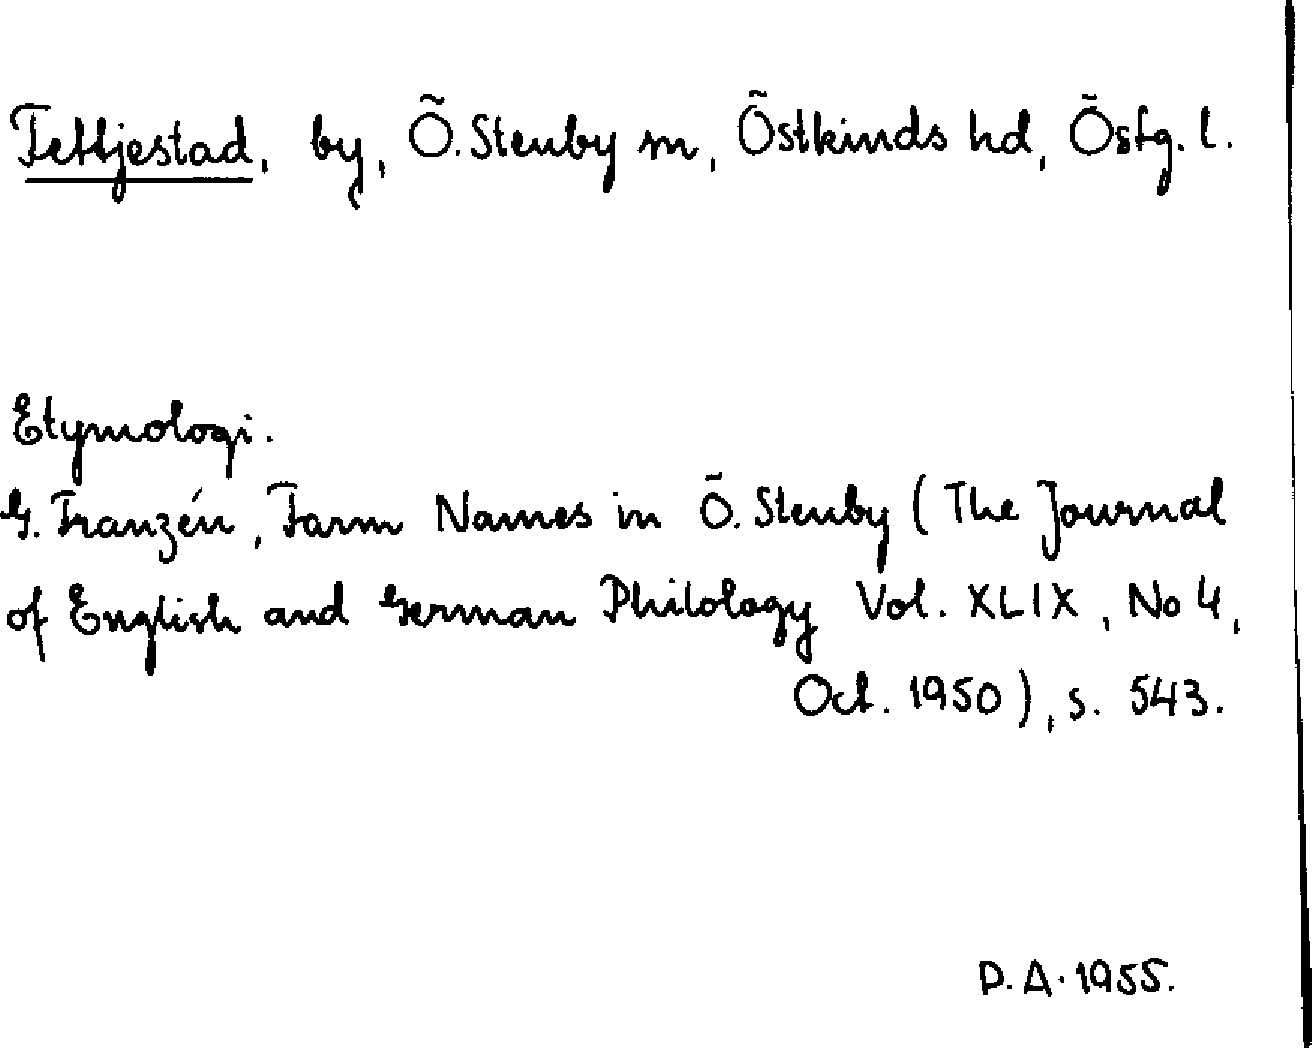 Fettjestad, by, Ö. Stenby sn, Östkinds hd, Östg. l.
Etymologi.
G. Franzén, Farm Names in Ö. Stenby (The Journal
of English and German Philology Vol. XLIX, No 4,
Oct. 1950), s. 543.
D. A. 1955.